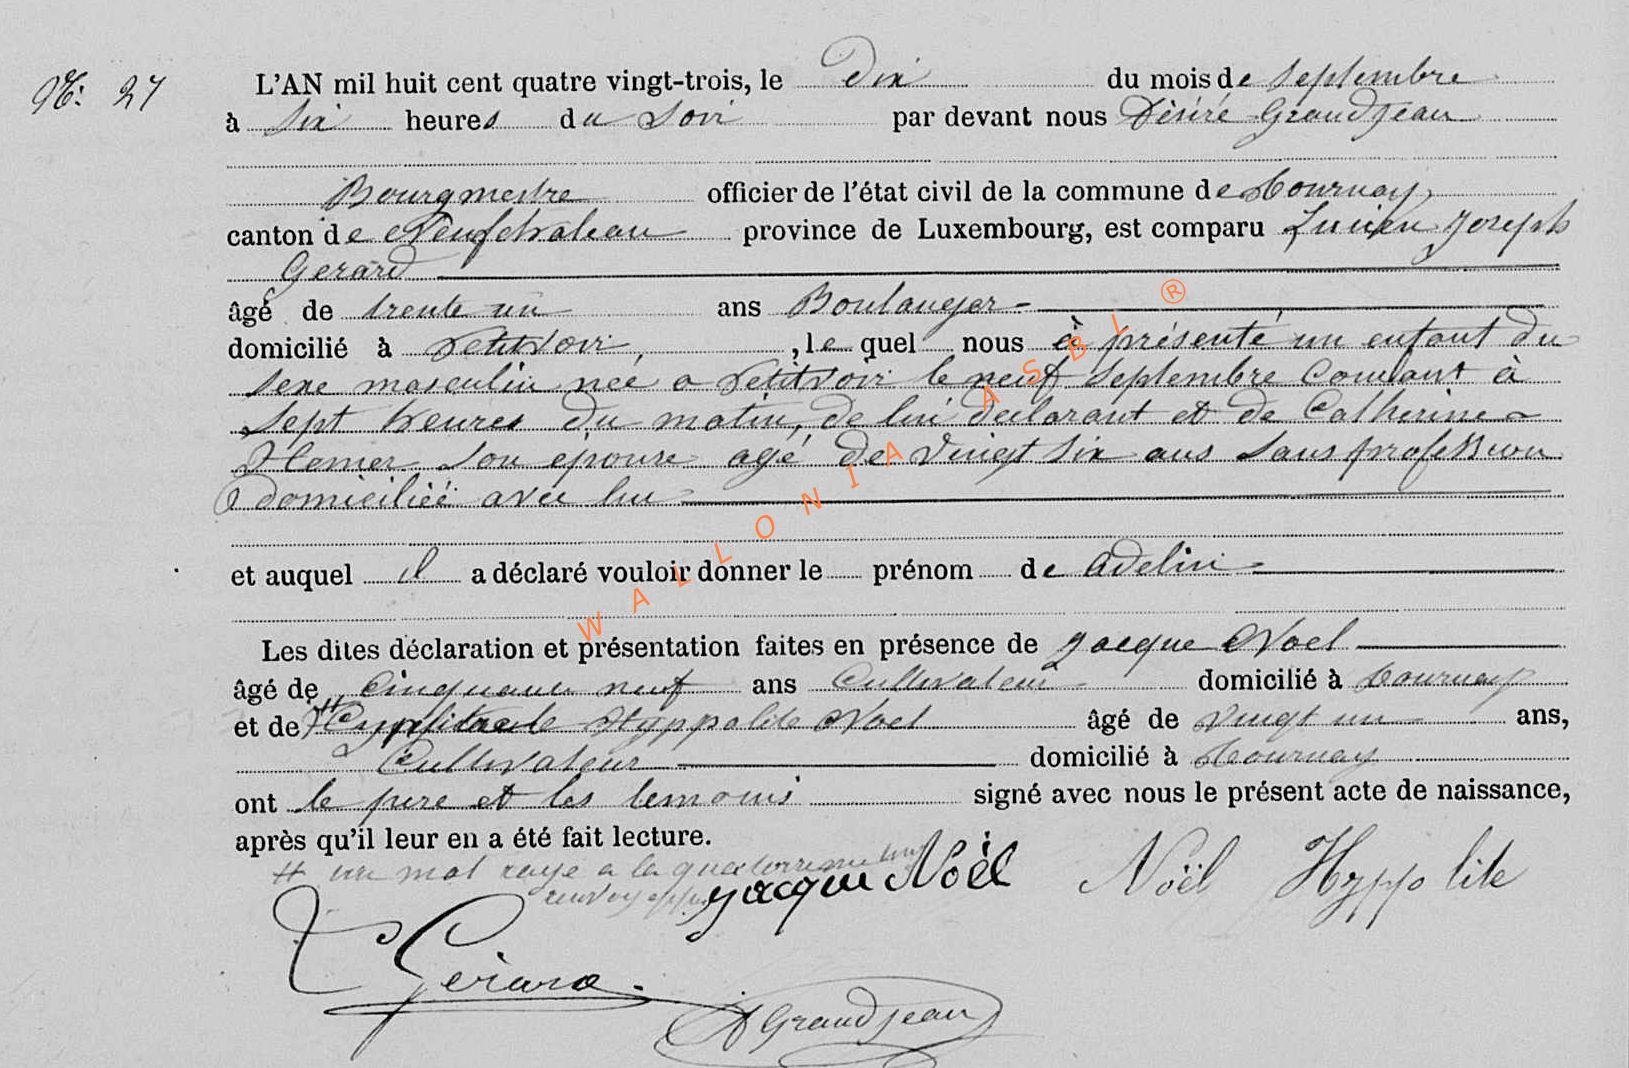 N°: 27
L'AN mil huit cent quatre vingt-trois, le dix du mois de Septembre
à Six heures du Soir par devant nous Désiré Grandjean
Bourgmestre officier de l'état civil de la commune de Tournay,
canton de Neufchateau province de Luxembourg, est comparu Lucien Joseph
Gerard
âgé de trente un ans Boulanger
domicilié à Petitvoir, , le quel nous à présenté un enfant du
sexe masculin née a Petitvoir le neuf Septembre Courant à
Sept heures du matin, de lui déclarant et de Catherine
son épouse agé de Vingt Six ans Sans profession
domiciliée avec lui
et auquel il a déclaré vouloir donner le prénom de Adelin
Les dites déclaration et présentation faites en présence de Jacque Noel
âgé de Cinquante neuf ans Cultivateur domicilié à Tournay
et de Hyppolite Noel âgé de Vingt un ans,
Cultivateur domicilié à Tournay
ont le pere et les temoins signé avec nous le présent acte de naissance,
après qu'il leur en a été fait lecture.
un mot rayé a la quatorzieme
Jacque Noël Noël Hyppolite
Gérard
D Grandjean
WALLONIA ASBL ®